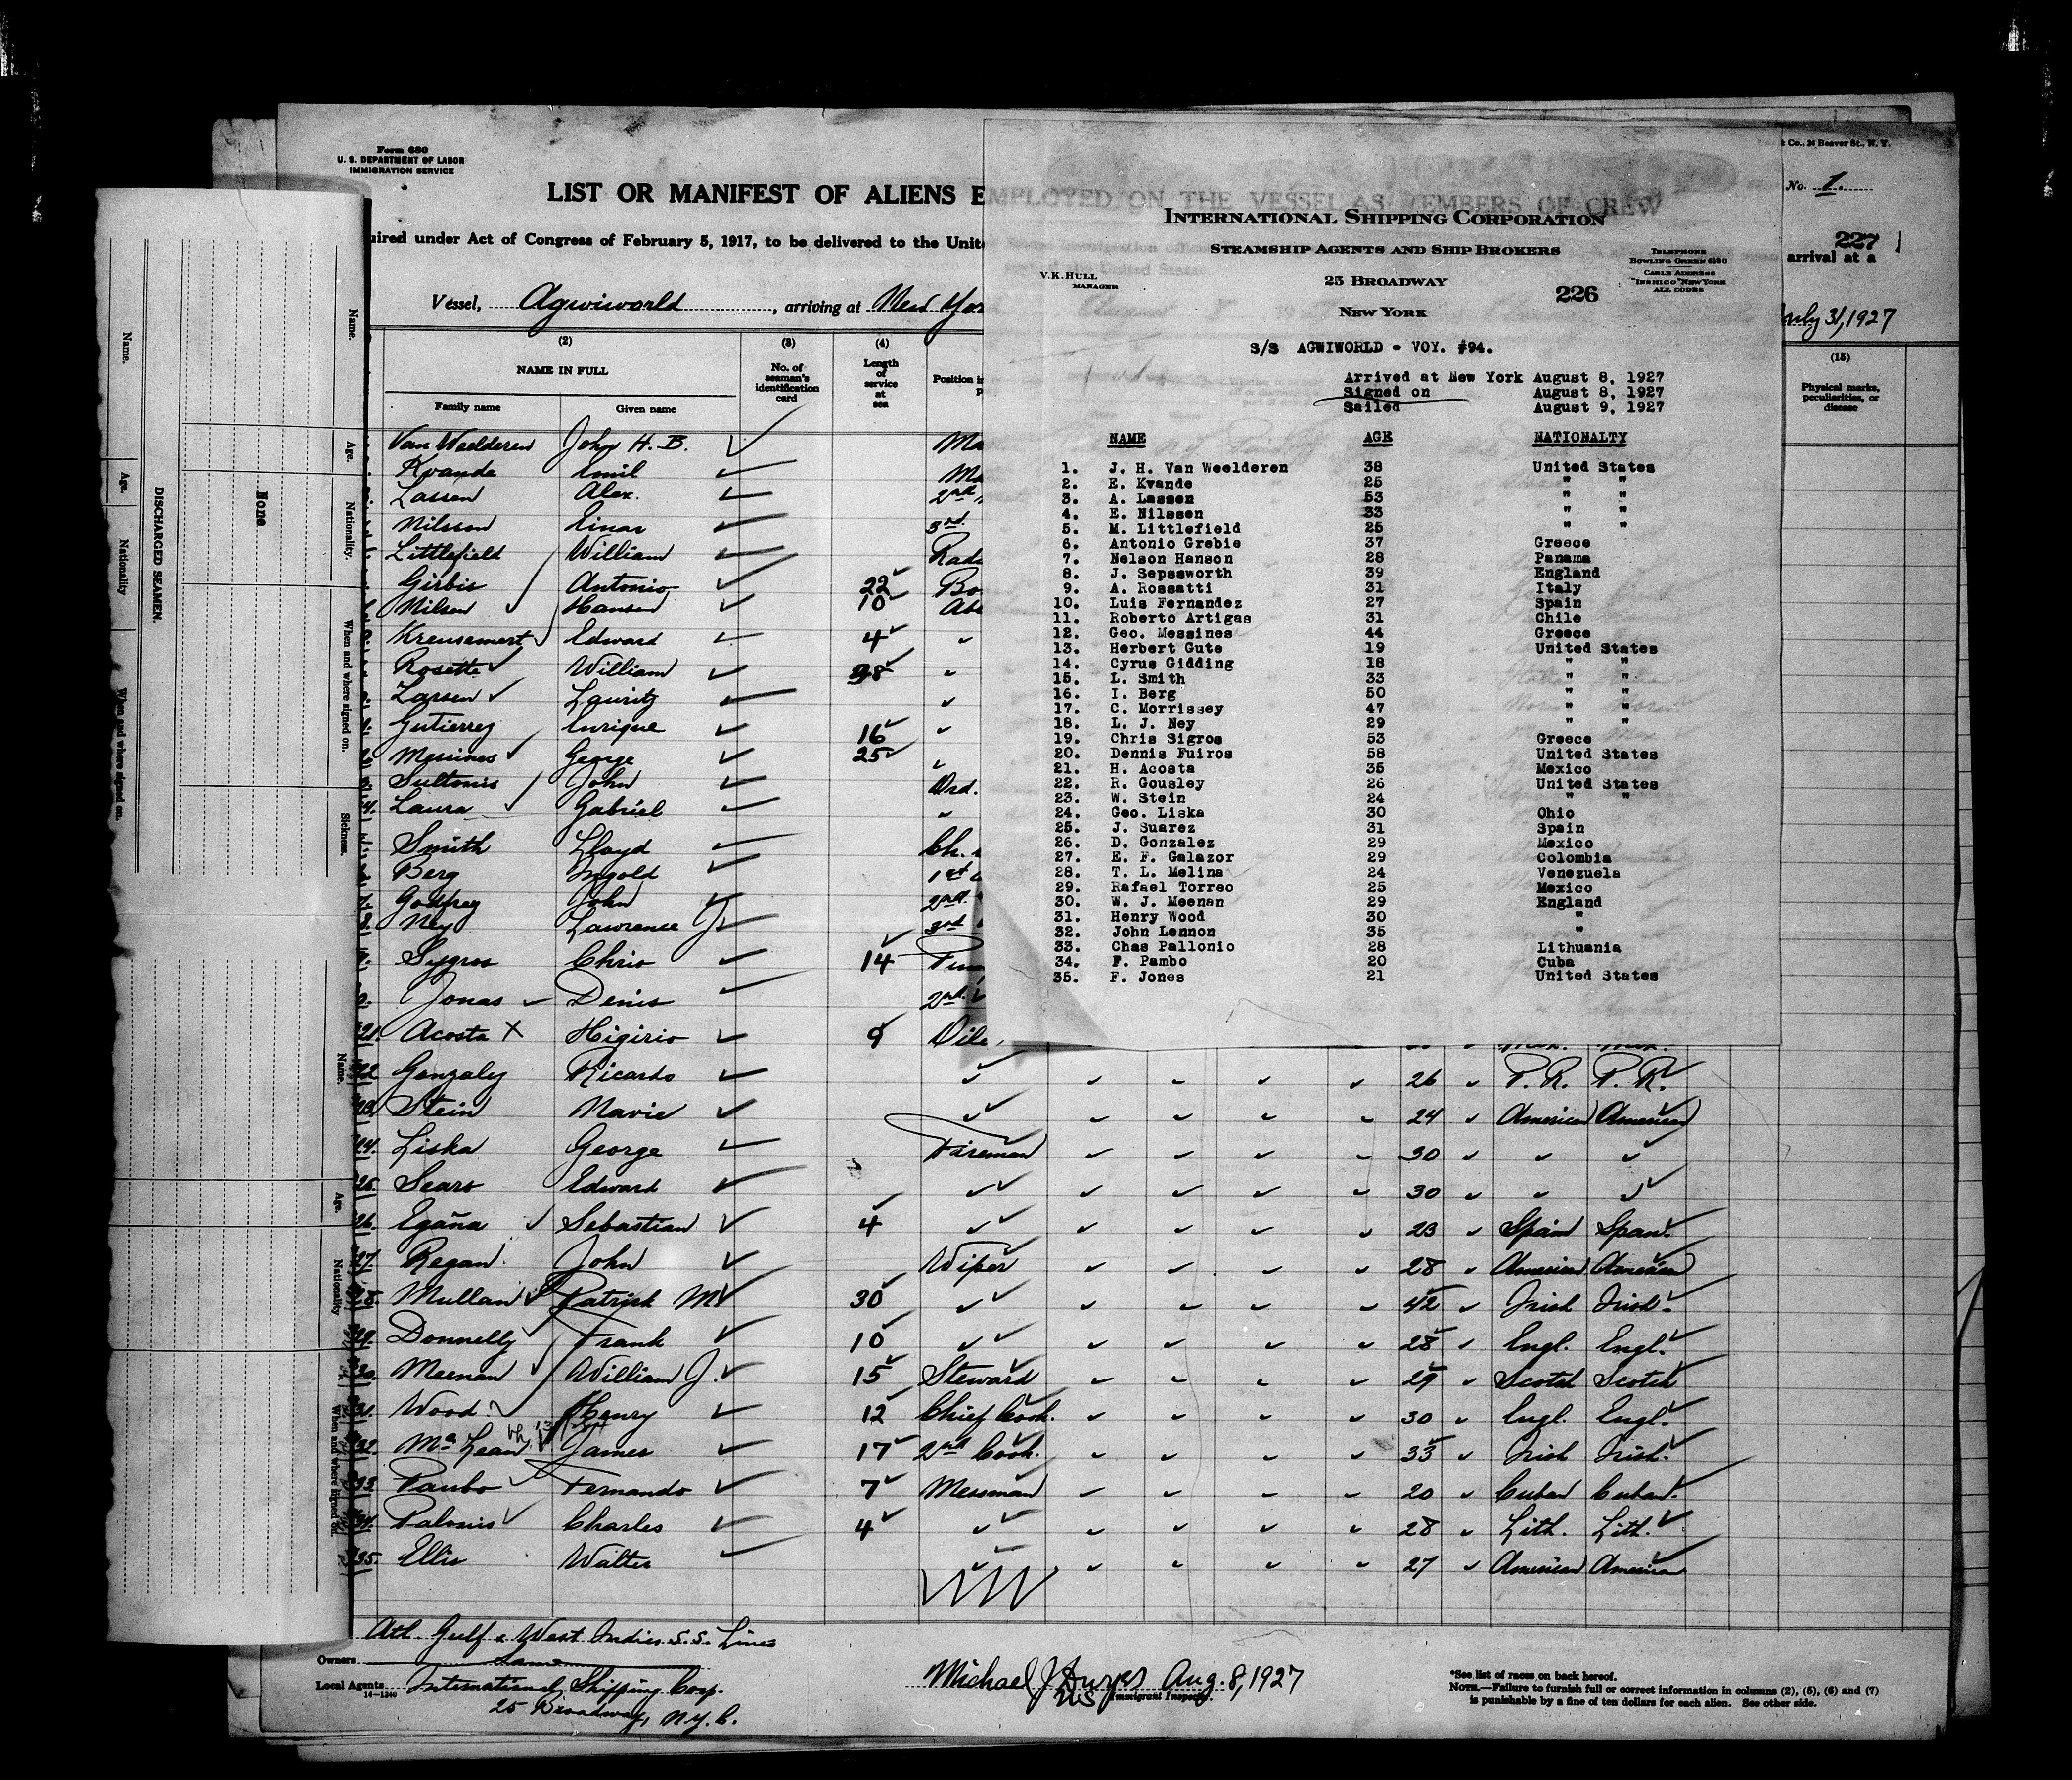 Form 680
U. S. DEPARTMENT OF LABOR
IMMIGRATION SERVICE
LIST OR MANIFEST OF ALIENS EMPLOYED ON THE VESSEL AS MEMBERS OF CREW
uired under Act of Congress of February 5, 1917, to be delivered to the Unite
Vessel, Agwiworld, arriving at New Yor
(2)
NAME IN FULL
Family name Given name
(3)
No. of seaman's identification card
(4)
Length of service at sea
Position i
Van Weelderen John H. B. Ma
Kvande Emil Ma
Lassen Alex. 2nd
Nilsson Einar 3rd
Littlefield William Radi
Girbis Antonio 22 Bo
Nilsen Hansen 10 Ab
Kreusemert Edward 4 "
Rosette William 38 "
Larsen Lauritz "
Gutierrez Enrique 16 "
Messines George 25 "
Sultonis John Ord.
Laura Gabriel "
Smith Lloyd Ch.
Berg Ingold 1st
Godfrey John 2nd
Ney Lawrence J. 3rd
Sygros Chris 14 Pum
Jonas Denis 2nd
21. Acosta X Higirio 9 Oile
22 Gonzalez Ricardo " 26 P. R. P. R.
23. Stein Marie " 24 American American
24. Liska George Fireman 30 " "
25. Sears Edward " 30 " "
26. Egaña Sebastian 4 " 23 Spain Span.
27. Regan John Wiper 28 American American
28. Mullan Patrick M. 30 " 42 Irish Irish.
29. Donnelly Frank 10 " 28 Engl. Engl.
30. Meenan William J. 15 Steward 29 Scotch Scotch
31. Wood Henry 12 Chief Cook. 30 Engl. Engl.
32 Mc Lean James 17 2nd Cook. 33 Irish Irish.
33. Panbo Fernando 7 Messman 20 Cuban Cuban.
34. Palonis Charles 4 " 28 Lith. Lith.
35. Ellis Walter " 27 American American
Atl. Gulf & West Indies S.S. Lines
Owners Same
Local Agents International Shipping Corp.
14—1240
25 Broadway, N.Y.C.
Michael J. Dwyer Aug. 8, 1927
Immigrant Inspector.
*See list of races on back hereof.
NOTE.—Failure to furnish full or correct information in columns (2), (5), (6) and (7)
is punishable by a fine of ten dollars for each alien. See other side.
Co., 24 Beaver St., N. Y.
No. 1.
227
arrival at a
July 31, 1927
(15)
Physical marks, peculiarities, or disease
INTERNATIONAL SHIPPING CORPORATION
STEAMSHIP AGENTS AND SHIP BROKERS
V. K. HULL
MANAGER
25 BROADWAY
NEW YORK
226
TELEPHONE
BOWLING GREEN 6180
CABLE ADDRESS
"INSHICO" NEW YORK
ALL CODES
S/S AGWIWORLD - VOY. #94.
Arrived at New York August 8, 1927
Signed on August 8, 1927
Sailed August 9, 1927
NAME AGE NATIONALTY
1. J. H. Van Weelderen 38 United States
2. E. Kvande 25 " "
3. A. Lassen 53 " "
4. E. Nilssen 33 " "
5. M. Littlefield 25 " "
6. Antonio Grebie 37 Greece
7. Nelson Hanson 28 Panama
8. J. Sepsworth 39 England
9. A. Rossatti 31 Italy
10. Luis Fernandez 27 Spain
11. Roberto Artigas 31 Chile
12. Geo. Messines 44 Greece
13. Herbert Gute 19 United States
14. Cyrus Gidding 18 " "
15. L. Smith 33 " "
16. I. Berg 50 " "
17. C. Morrissey 47 " "
18. L. J. Ney 29 " "
19. Chris Sigros 53 Greece
20. Dennis Fuiros 58 United States
21. H. Acosta 35 Mexico
22. R. Gousley 26 United States
23. W. Stein 24 " "
24. Geo. Liska 30 Ohio
25. J. Suarez 31 Spain
26. D. Gonzalez 29 Mexico
27. E. F. Galazor 29 Colombia
28. T. L. Melina 24 Venezuela
29. Rafael Torreo 25 Mexico
30. W. J. Meenan 29 England
31. Henry Wood 30 "
32. John Lennon 35 "
33. Chas Pallonio 28 Lithuania
34. F. Pambo 20 Cuba
35. F. Jones 21 United States
DISCHARGED SEAMEN.
None
Name.
Age.
Nationality.
When and where signed on.
Sickness.
Name.
Age.
Nationality
When and where signed on.
Name.
Age.
Nationality
When and where signed on.